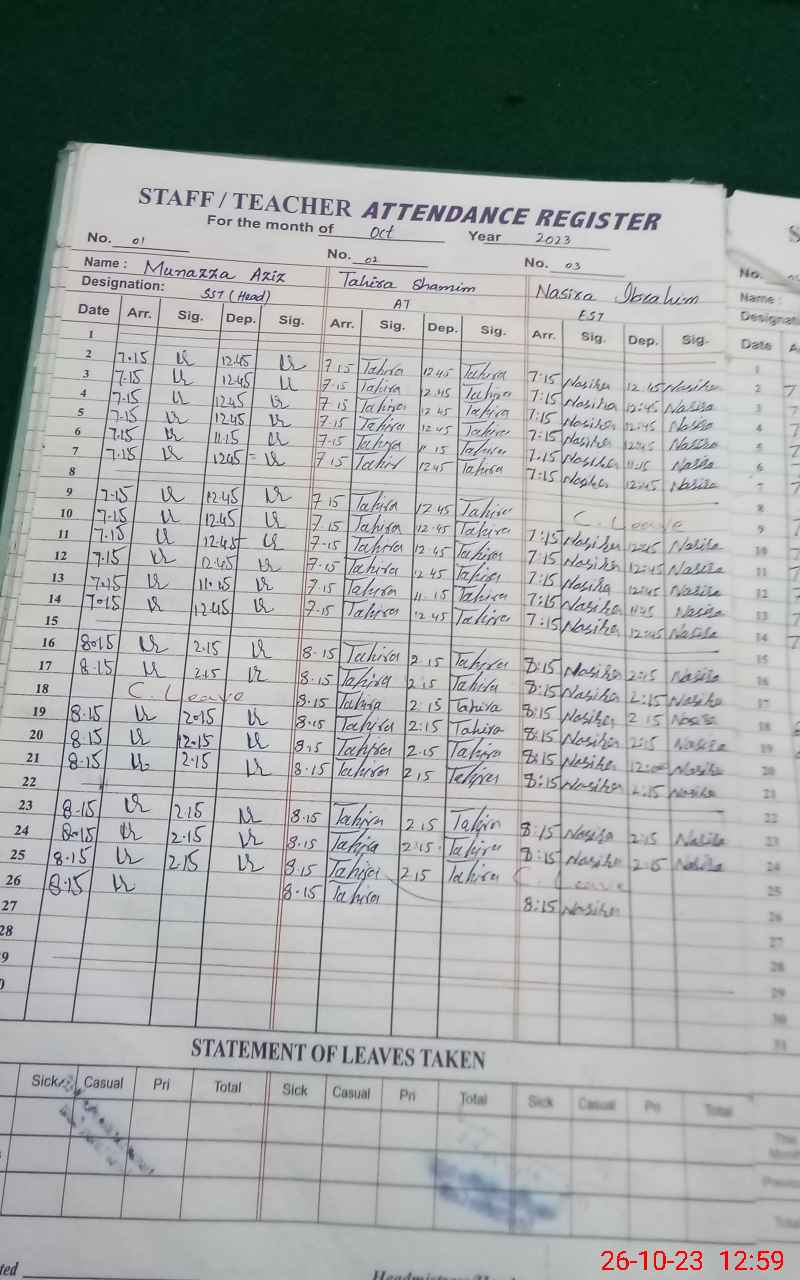 STAFF / TEACHER ATTENDANCE REGISTER
For the month of Oct Year 2023
No. 01 No. 02 No. 03
Name : Munazza Aziz Tahira Shamim Nasira Ibrahim
Designation: SST (Head) AT EST
Date Arr. Sig. Dep. Sig. Arr. Sig. Dep. Sig. Arr. Sig. Dep. Sig.
1
2 7.15 12.45 7.15 Tahira 12.45 Tahira 7:15 Nasira 12.45 Nasira
3 7.15 12.45 7.15 Tahira 12.45 Tahira 7:15 Nasira 12:45 Nasira
4 7.15 12.45 7.15 Tahira 12.45 Tahira 7:15 Nasira 12:45 Nasira
5 7.15 12.45 7.15 Tahira 12.45 Tahira 7:15 Nasira 12:45 Nasira
6 7.15 11.15 7.15 Tahira 11.15 Tahira 7.15 Nasira 11:15 Nasira
7 7.15 12.45 7.15 Tahira 12.45 Tahira 7:15 Nasira 12:45 Nasira
8
9 7.15 12.45 7.15 Tahira 12.45 Tahira C. Leave
10 7.15 12.45 7.15 Tahira 12.45 Tahira 7:15 Nasira 12:45 Nasira
11 7.15 12.45 7.15 Tahira 12.45 Tahira 7:15 Nasira 12:45 Nasira
12 7.15 12.45 7.15 Tahira 12.45 Tahira 7:15 Nasira 12:45 Nasira
13 7.15 11.15 7.15 Tahira 11.15 Tahira 7:15 Nasira Nasira
14 7.15 12.45 7.15 Tahira 12.45 Tahira 7:15 Nasira 12:45 Nasira
15
16 8.15 2.15 8.15 Tahira 2.15 Tahira 8:15 Nasira 2:15 Nasira
17 8.15 2.15 8.15 Tahira 2.15 Tahira 8:15 Nasira 2:15 Nasira
18 C. Leave 8.15 Tahira 2.15 Tahira 8:15 Nasira 2.15 Nasira
19 8.15 2.15 8.15 Tahira 2:15 Tahira 8:15 Nasira 2:15 Nasira
20 8.15 12.15 8.15 Tahira 2.15 Tahira 8:15 Nasira Nasira
21 8.15 2.15 8.15 Tahira 2.15 Tahira 8:15 Nasira 2:15 Nasira
22
23 8.15 2.15 8.15 Tahira 2.15 Tahira 8:15 Nasira 2:15 Nasira
24 8.15 2.15 8.15 Tahira 2.15 Tahira 8:15 Nasira 2:15 Nasira
25 8.15 2.15 8.15 Tahira 2.15 Tahira C. Leave
26 8.15 8.15 Tahira 8:15 Nasira
27
28
9
0
STATEMENT OF LEAVES TAKEN
Sick Casual Pri Total Sick Casual Pri Total Sick Casual Pri Total
No.
Name :
Date
1
2
3
4
5
6
7
8
9
10
11
12
13
14
15
16
17
18
19
20
21
22
23
24
25
26
27
28
29
30
31
26-10-23 12:59